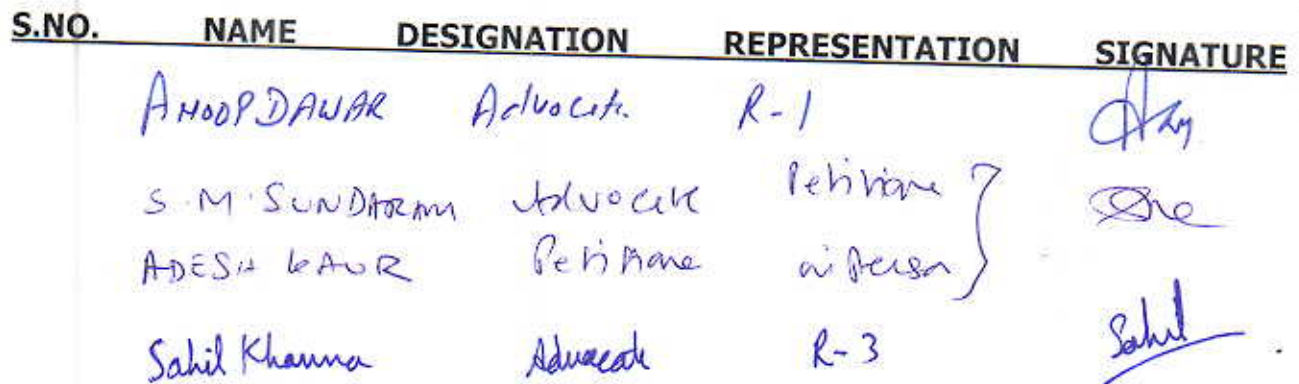 S.NO. NAME DESIGNATION REPRESENTATION SIGNATURE
ANOOP DAWAR Advocate R-1
S.M. SUNDARAM Advocate Petitioner
ADESH KAUR Petitioner in person
Sahil Khanna Advocate R-3 Sahil